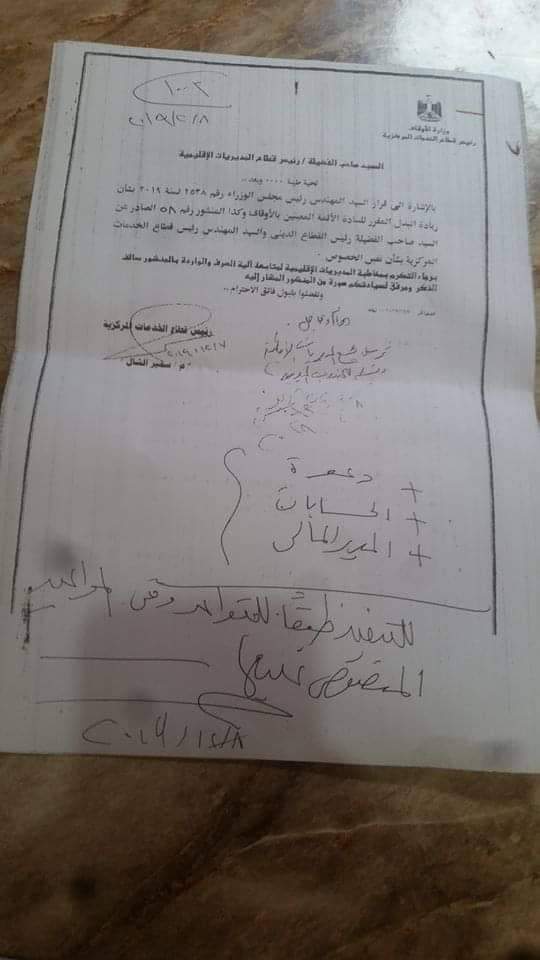 ١٠٠٢
وزارة الأوقاف
رئيس قطاع الخدمات المركزية
السيد صاحب الفضيلة / رئيس قطاع المديريات الإقليمية
تحية طيبة .... وبعد ..
بالإشارة الى قرار السيد المهندس رئيس مجلس الوزراء رقم ٢٥٣٨ لسنة ٢٠١٩ بشأن
زيادة البدل المقرر للسادة الأئمة المعينين بالأوقاف وكذا المنشور رقم ٥٨ الصادر عن
السيد صاحب الفضيلة رئيس القطاع الدينى والسيد المهندس رئيس قطاع الخدمات
المركزية بشأن نفس الخصوص .
برجاء التكرم بمخاطبة المديريات الإقليمية لمتابعة آلية الصرف والواردة بالمنشور سالف
الذكر ومرفق لسيادتكم صورة من المنشور المشار إليه
وتفضلوا بقبول فائق الاحترام ..
رئيس قطاع الخدمات المركزية
م / سمير الشال
+ دعوة
+ الحسابات
+ المدير المالى
للتنفيذ طبقاً للقواعد وفى المواعيد
المنصوص عليها